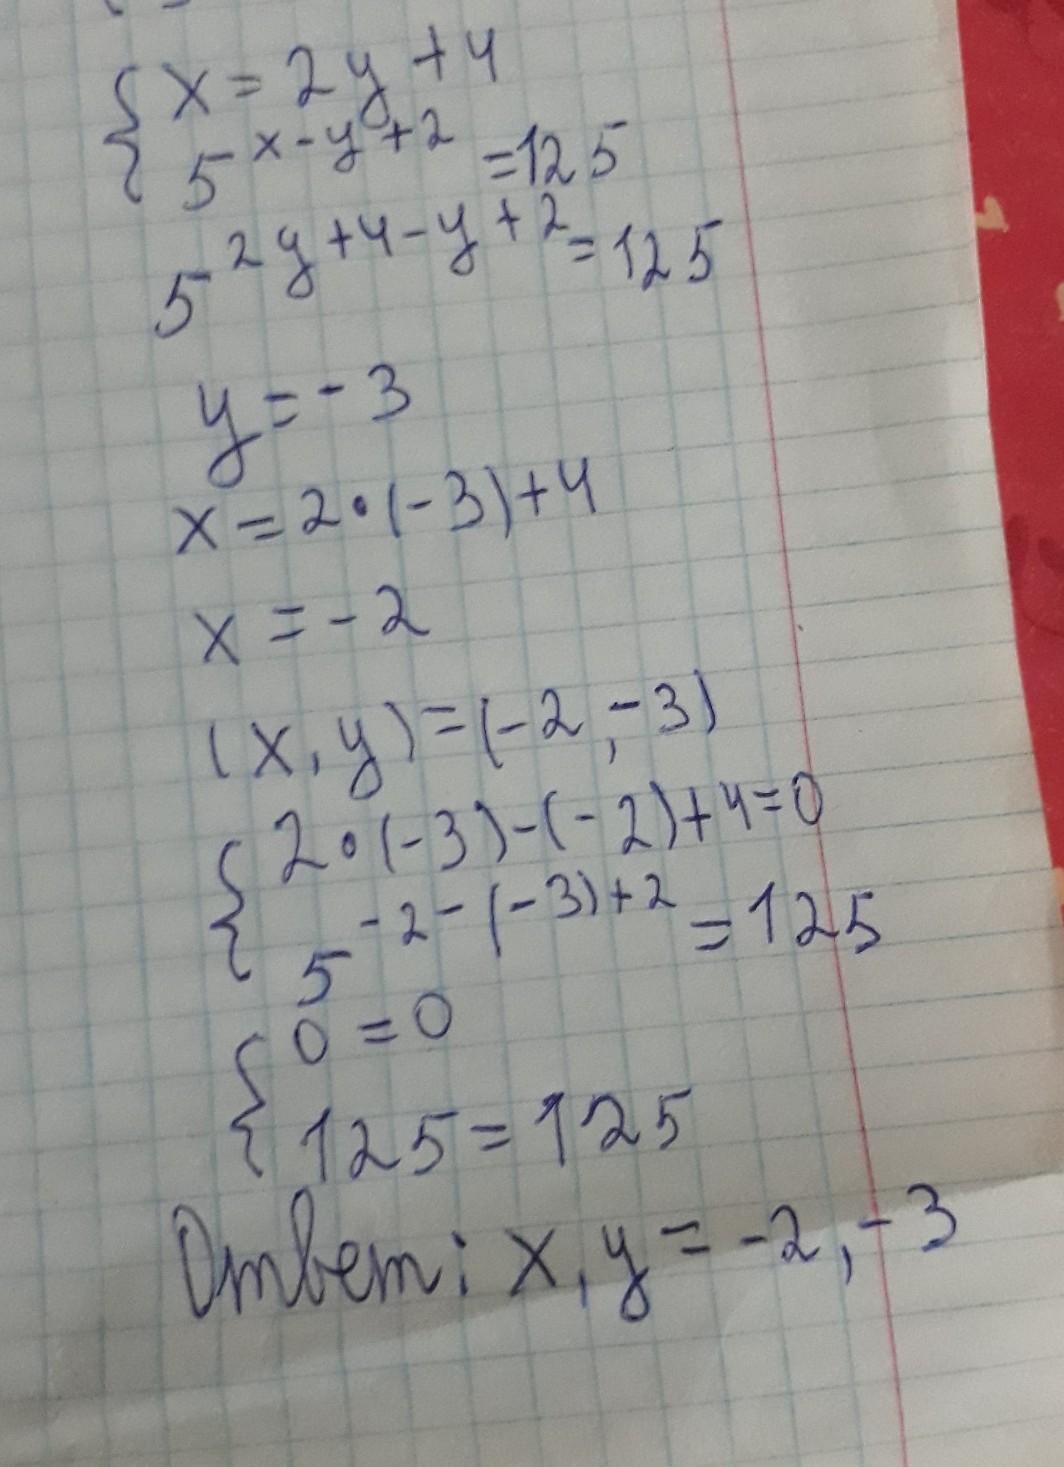 { x = 2y + 4
5^{x-y+2} = 125
5^{2y+4-y+2} = 125
y = -3
x = 2•(-3)+4
x = -2
(x, y) = (-2, -3)
{ 2•(-3)-(-2)+4=0
5^{-2-(-3)+2} = 125
{ 0 = 0
125 = 125
Ответ: x, y = -2, -3